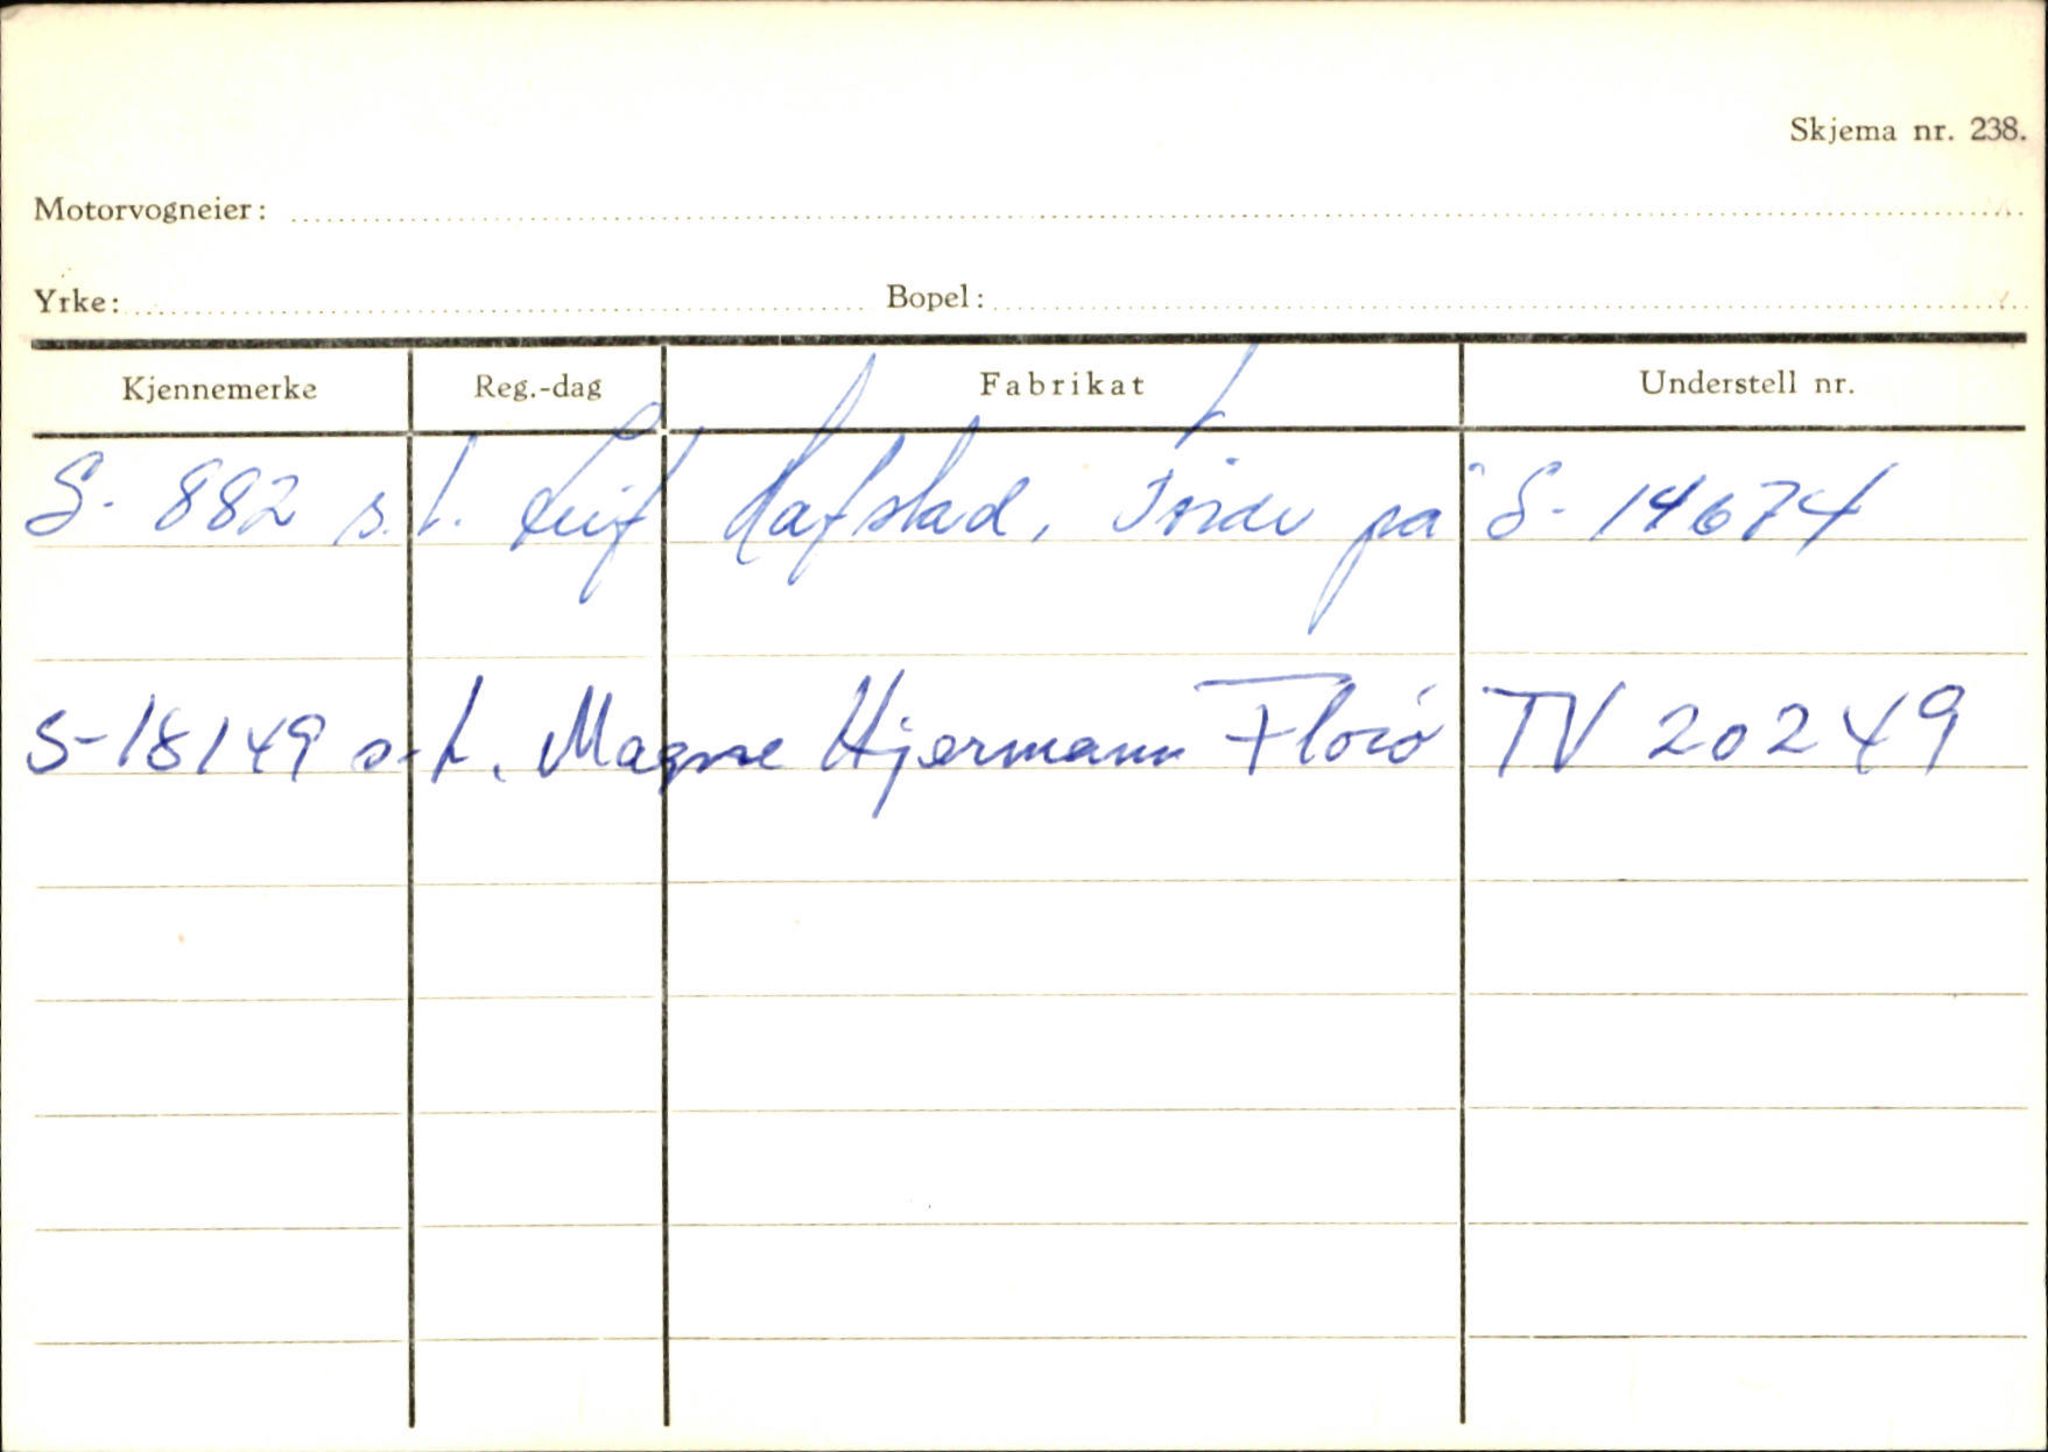 Skjema nr. 238.
Motorvogneier:
Yrke: Bopel:
Kjennemerke Reg.-dag Fabrikat Understell nr.
S- 882 s.t. Leif Hafstad, Førde på S- 14674
S-18149 s.t. Magne Hjermann Florø TV 20249